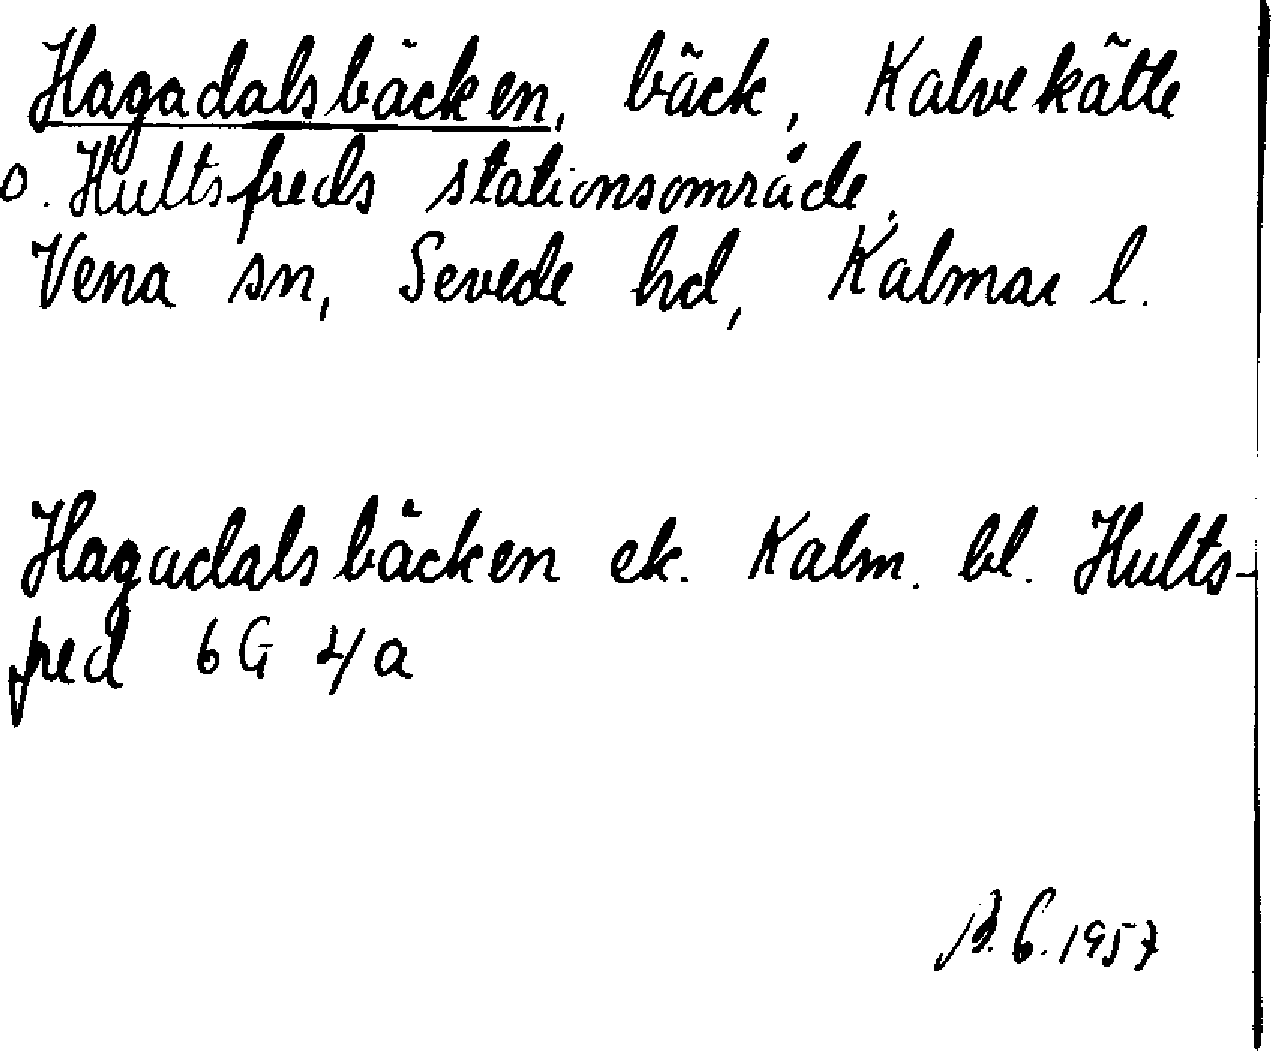 Hagadalsbäcken, bäck, Kalvekätte
o. Hultsfreds stationsområde,
Vena sn, Sevede hd, Kalmar l.
Hagadalsbäcken ek. Kalm. bl. Hults-
fred 6G 4a
B. G. 1957